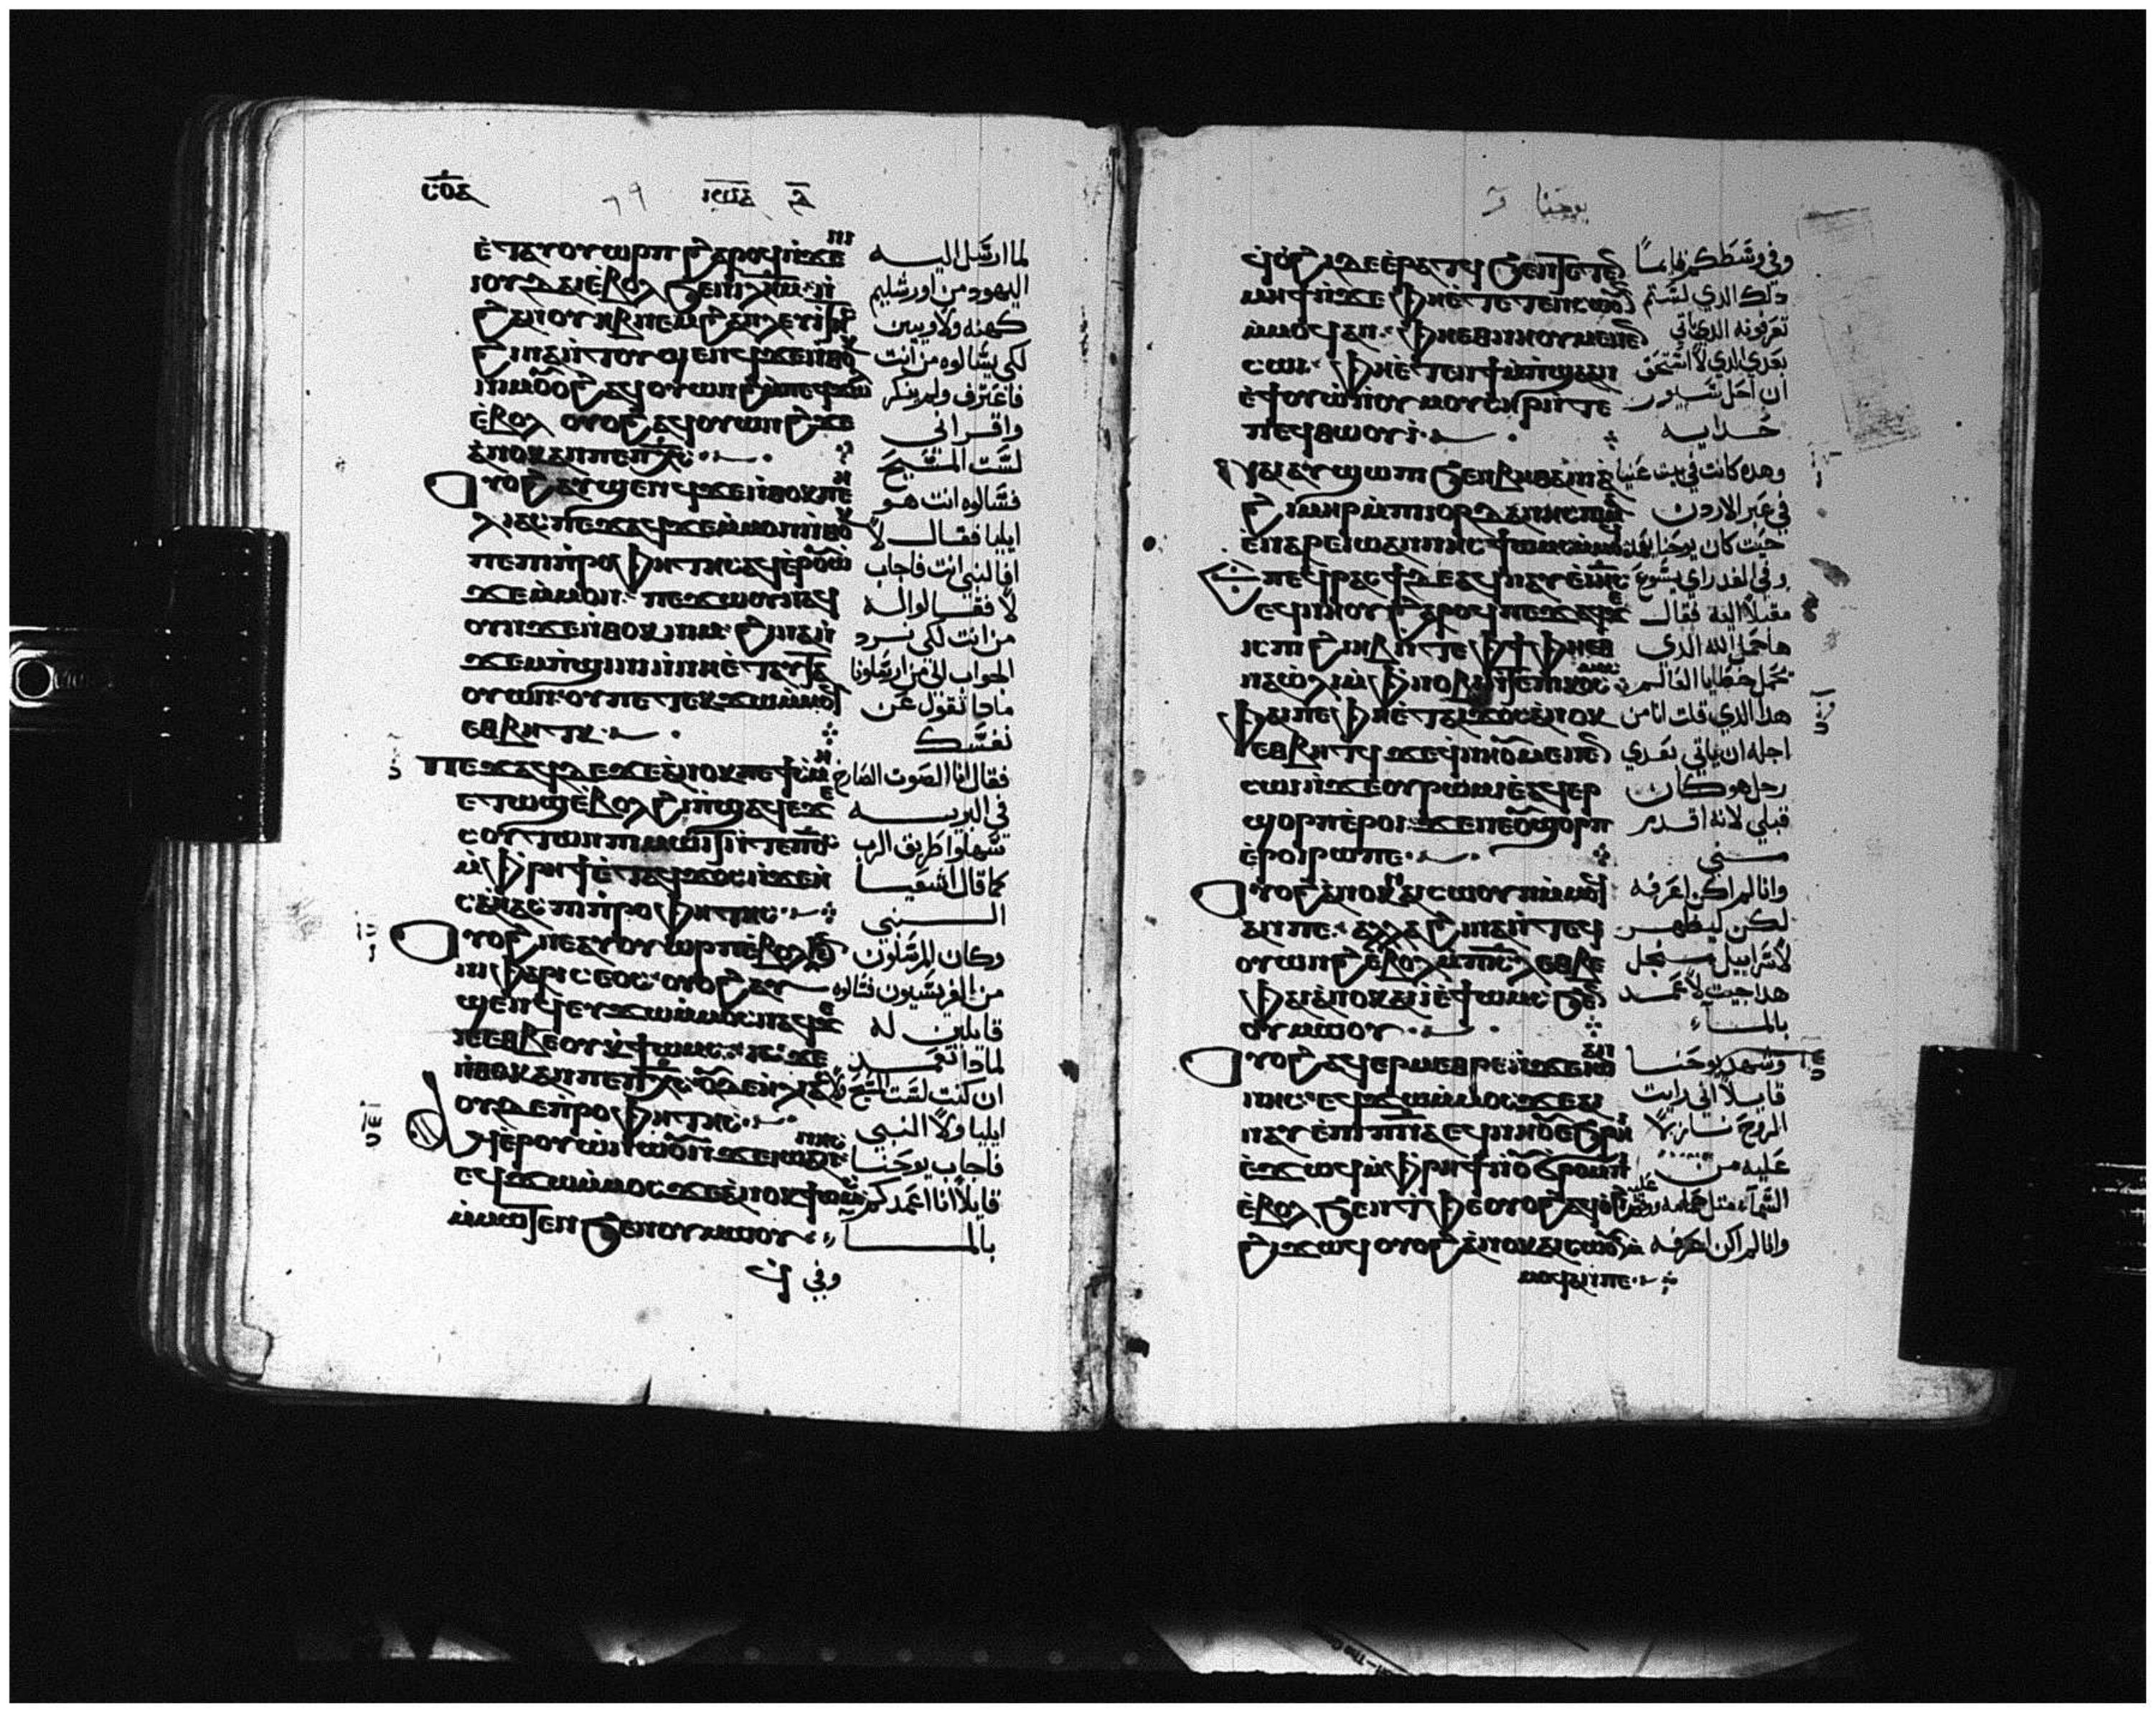 ⲥⲟⲁ
ⲓⲱⲁ ⲁ̅
ⲉ̀ⲧⲁⲩⲟⲩⲱⲣⲡ ϩⲁⲣⲟϥ ⲛ̀ϫⲉ ⲛⲓ
ⲓⲟⲩⲇⲁⲓ ⲉ̀ⲃⲟⲗ ϧⲉⲛ ⲓ̅ⲗ̅ⲏ̅ⲙ̅ ⲛ̀
ϩⲁⲛⲟⲩⲏⲃ ⲛⲉⲙ ϩⲁⲛⲗⲉⲩⲓⲧⲏⲥ
ϩⲓⲛⲁ ⲛ̀ⲧⲟⲩϣⲉⲛϥ ϫⲉ ⲛ̀ⲑⲟⲕ
ⲛⲓⲙ ⲟⲩⲟϩ ⲁϥⲟⲩⲱⲛϩ ⲙ̀ⲡⲉϥϫⲱⲗ
ⲉ̀ⲃⲟⲗ ⲟⲩⲟϩ ⲁϥⲟⲩⲱⲛϩ ϫⲉ
ⲁ̀ⲛⲟⲕ ⲁⲛ ⲡⲉ ⲡ̅ⲭ̅ⲥ̅
ⲟⲩⲟϩ ⲁⲩϣⲉⲛϥ ϫⲉ ⲛ̀ⲑⲟⲕ ⲡⲉ ⲏ
ⲗⲓⲁⲥ ⲡⲉϫⲁϥ ϫⲉ ⲙ̀ⲙⲟⲛ ⲛ̀ⲑⲟⲕ
ⲡⲉ ⲡⲓⲡ̀ⲣⲟⲫⲏⲧⲏⲥ ⲁϥⲉ̀ⲣⲟⲩⲱ̀
ϫⲉ ⲙ̀ⲙⲟⲛ ⲡⲉϫⲱⲟⲩ ⲛⲁϥ
ⲟⲩⲛ ϫⲉ ⲛ̀ⲑⲟⲕ ⲛⲓⲙ ϩⲓⲛⲁ ⲛ̀
ϫⲉⲙⲡ̀ϣⲓⲛⲓ ⲛ̀ⲛⲏⲉ̀ⲧⲁⲩⲧⲁ
ⲟⲩⲱⲛ ⲟⲩ ⲡⲉ ⲧⲉⲕϫⲱ ⲙ̀ⲙⲟϥ
ⲉⲑⲃⲏⲧⲕ
ⲡⲉϫⲁϥ ⲇⲉ ϫⲉ ⲁ̀ⲛⲟⲕ ⲡⲉ ⲧ̀ⲥⲙⲏ
ⲉⲧⲱϣ ⲉ̀ⲃⲟⲗ ϩⲓ ⲡ̀ϣⲁϥⲉ ϫⲉ
ⲥⲟⲩⲧⲱⲛ ⲡⲓⲙⲱⲓⲧ ⲛ̀ⲧⲉ ⲡ̅ⲟ̅ⲥ̅
ⲙ̀ⲫ̀ⲣⲏϯ ⲉ̀ⲧⲁϥϫⲟⲥ ⲛ̀ϫⲉ ⲏ̀
ⲥⲁⲏ̀ⲁⲥ ⲡⲓⲡ̀ⲣⲟⲫⲏⲧⲏⲥ
ⲟⲩⲟϩ ⲛⲉⲁⲩⲟⲩⲱⲣⲡ ⲉ̀ⲃⲟⲗ ϧⲉⲛ
ⲛⲓⲫⲁⲣⲓⲥⲉⲟⲥ ⲟⲩⲟϩ ⲁⲩ
ϣⲉⲛϥ ⲉⲩϫⲱ ⲙ̀ⲙⲟⲥ ⲛⲁϥ ϫⲉ
ⲓⲉ ⲉⲑⲃⲉⲟⲩ ⲕ̀ϯⲱⲙⲥ ⲓⲥϫⲉ
ⲛ̀ⲑⲟⲕ ⲁⲛ ⲡⲉ ⲡ̅ⲭ̅ⲥ̅ ⲟⲩⲇⲉ ⲏ̀ⲗⲓⲁⲥ
ⲟⲩⲇⲉ ⲡ̀ⲣⲟⲫⲏⲧⲏⲥ
ⲁϥⲉ̀ⲣⲟⲩⲱ̀ ⲛⲱⲟⲩ ⲛ̀ϫⲉ ⲓⲱⲁⲛⲛⲏⲥ
ⲉϥϫⲱ ⲙ̀ⲙⲟⲥ ϫⲉ ⲁ̀ⲛⲟⲕ ϯⲱⲙⲥ
ⲙ̀ⲙⲱⲧⲉⲛ ϧⲉⲛ ⲟⲩⲙⲱⲟⲩ
لما ارسل اليه
اليهود من اورشليم
كهنه ولاويين
لكي يسالوه من انت
فاعترف ولم ينكر
واقر اني
لست المسيح
فسالوه انت هو
ايليا فقال لا
افالنبي انت فاجاب
لا فقالوا له
من انت لكي نرد
الجواب الي الذين ارسلونا
ماذا تقول عن
نفسك
فقال انا الصوت الصارخ
في البريه
سهلوا طريق الرب
كما قال اشعيا
النبي
وكان المرسلون
من الفريسيون فسالوه
قايلين له
لماذا تعمد
ان كنت لست المسيح ولا
ايليا ولا النبي
فاجاب يوحنا
قايلا انا اعمدكم
بالما
وفي
يوحنا
ϥⲟ̀ϩⲓ ⲇⲉ ⲉ̀ⲣⲁⲧϥ ϧⲉⲛ ⲧⲉⲧⲉⲛ
ⲙⲏϯ ⲛ̀ϫⲉ ⲫⲏⲉ̀ⲧⲉⲧⲉⲛⲥⲱⲟⲩⲛ
ⲙ̀ⲙⲟϥ ⲁⲛ ⲫⲏⲉⲑⲛⲏⲟⲩ ⲙⲉⲛⲉⲛ
ⲥⲱⲓ ⲫⲏⲉ̀ⲧⲉⲛϯⲙ̀ⲡ̀ϣⲁ ⲁⲛ
ⲉ̀ϯⲟⲩⲱ̀ ⲛ̀ⲟⲩⲙⲟⲩⲥⲏⲣ ⲛ̀ⲧⲉ
ⲡⲉϥⲑⲱⲟⲩⲓ̀
ⲛⲁⲓ ⲁⲩϣⲱⲡⲓ ϧⲉⲛ ⲃⲏⲑⲁⲛⲓⲁ̀
ϩⲓⲙⲏⲣ ⲙ̀ⲡⲓⲓⲟⲣⲇⲁⲛⲏⲥ ⲡⲓⲙⲁ
ⲉ̀ⲛⲁⲣⲉ ⲓⲱⲁⲛⲛⲏⲥ ϯⲱⲙⲥ ⲙ̀ⲙⲟϥ
ⲡⲉϥⲣⲁⲥϯ ⲇⲉ ⲁϥⲛⲁⲩ ⲉ̀ⲓ̅ⲏ̅ⲥ̅
ⲉϥⲛⲏⲟⲩ ϩⲁⲣⲟϥ ⲡⲉϫⲁϥ ϫⲉ
ⲓⲥ ⲡⲓϩⲓⲏⲃ ⲛ̀ⲧⲉ ⲫϯ ⲫⲏⲉⲑ
ⲛⲁⲱ̀ⲗⲓ ⲙ̀ⲫ̀ⲛⲟⲃⲓ ⲛ̀ⲧⲉ ⲡⲓⲕⲟⲥⲙⲟⲥ
ⲫⲁⲓ ⲡⲉ ⲫⲏⲉ̀ⲧⲁⲓϫⲟⲥ ⲁ̀ⲛⲟⲕ
ⲉⲑⲃⲏⲧϥ ϫⲉ ϥ̀ⲛⲏⲟⲩ ⲙⲉⲛⲉⲛ
ⲥⲱⲓ ⲛ̀ϫⲉ ⲟⲩⲣⲱⲙⲓ ⲉ̀ⲁϥⲉⲣ
ϣⲟⲣⲡ ⲉ̀ⲣⲟⲓ ϫⲉ ⲛⲉ ⲟⲩϣⲟⲣⲡ
ⲉ̀ⲣⲟⲓ ⲣⲱ ⲡⲉ
ⲟⲩⲟϩ ⲁ̀ⲛⲟⲕ ⲛⲁⲓⲥⲱⲟⲩⲛ ⲙ̀ⲙⲟϥ
ⲁⲛ ⲡⲉ ⲁⲗⲗⲁ ϩⲓⲛⲁ ⲛ̀ⲧⲉϥ
ⲟⲩⲱⲛϩ ⲉ̀ⲃⲟⲗ ⲙ̀ⲡ̅ⲓ̅ⲥ̅ⲗ̅ ⲉⲑⲃⲉ
ⲫⲁⲓ ⲁ̀ⲛⲟⲕ ⲁⲓⲓ̀ ⲉ̀ϯⲱⲙⲥ ϧⲉⲛ
ⲟⲩⲙⲱⲟⲩ
ⲟⲩⲟϩ ⲁϥⲉⲣⲙⲉⲑⲣⲉ ⲛ̀ϫⲉ ⲓⲱⲁⲛ
ⲛⲏⲥ ⲉϥϫⲱ ⲙ̀ⲙⲟⲥ ϫⲉ ⲁⲓ
ⲛⲁⲩ ⲉ̀ⲡⲓⲡ̅ⲛ̅ⲁ̅ ⲉϥⲛⲏⲟⲩ ⲉ̀ϧⲣⲏⲓ
ⲉ̀ϫⲱϥ ⲙ̀ⲫ̀ⲣⲏϯ ⲛ̀ⲟⲩϭⲣⲟⲙⲡⲓ
ⲉ̀ⲃⲟⲗ ϧⲉⲛ ⲧ̀ⲫⲉ ⲟⲩⲟϩ ⲁϥⲟ̀ϩⲓ
ϩⲓϫⲱϥ ⲟⲩⲟϩ ⲁ̀ⲛⲟⲕ ⲛⲁⲓⲥⲱⲟⲩⲛ
ⲙ̀ⲙⲟϥ ⲁⲛ ⲡⲉ
وفي وسطكم قايما
ذلك الذي لستم
تعرفونه الذي ياتي
بعدي الذي لا استحق
ان احل سيور
حدايه
وهذه كانت في بيت عنيا
في عبر الاردن
حيث كان يوحنا يعمد
وفي الغد راي يسوع
مقبلا اليه فقال
هاحمل الله الذي
يحمل خطايا العالم
هذا الذي قلت انا من
اجله ان ياتي بعدي
رجل هو كان
قبلي لانه اقدم
مني
وانا لم اكن اعرفه
لكن ليظهر
لاسراييل من اجل
هذا جيت لاعمد
بالماء
وشهد يوحنا
قايلا اني رايت
الروح نازلا
عليه من
السماء مثل حمامه
وانا لم اكن اعرفه